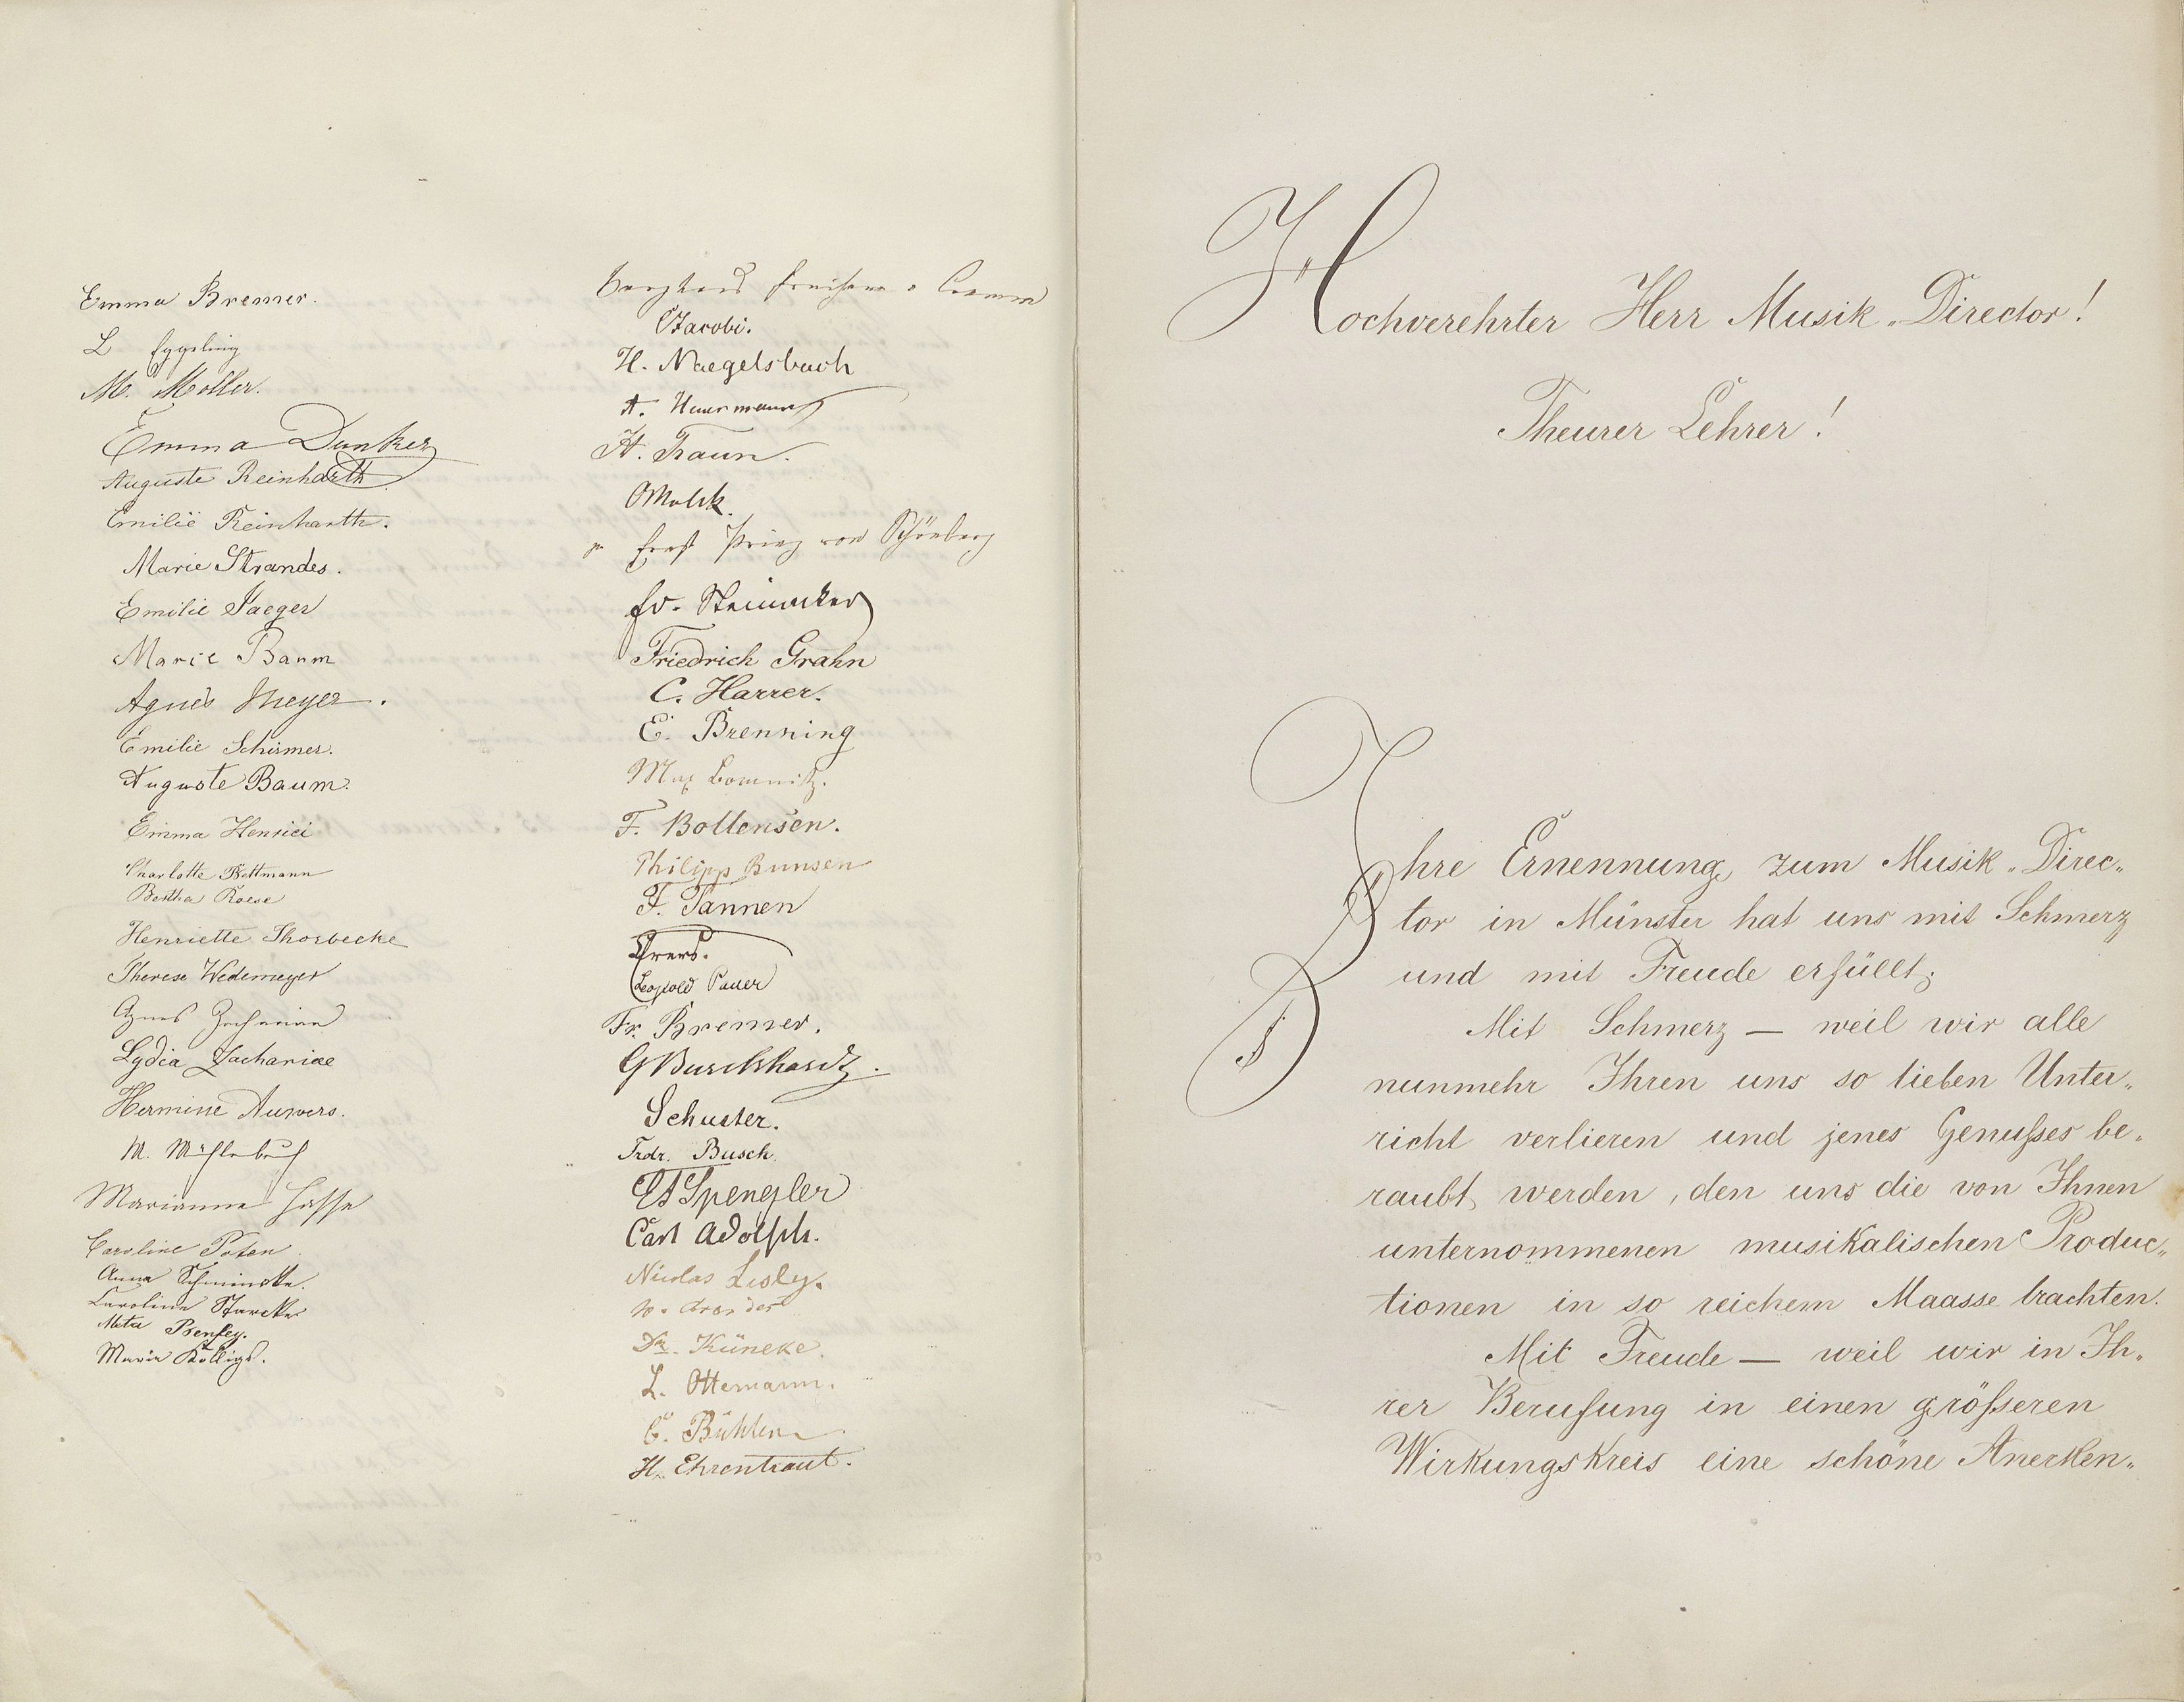 Emma Bremer.
L Eggeling
M. Moller.
Emma Dunker
Auguste Reinharth
Emilie Reinharth.
Marie Strandes.
Emilie Jaeger
Marie Baum
Agnes Meyer.
Emilie Schirmer.
Auguste Baum.
Emma Henrici
Charlotte Bettmann
Bertha Roese
Henriette Thorbecke
Therese Wedemeyer
Agnes Zachariae
Lydia Zachariae
Hermine Auwers.
M. Mühlenbruch
Marianne Hasse
Caroline Poten
Anna Schmincke.
Caroline Starcke
Meta Benfey.
Marie Kölligs.
Burghard Freiherr v Cramm
Jacobi.
H. Naegelsbach
A.
H. Traun.
Ernst Prinz von Schönberg
Fr. Steinacker
Friedrich Grahn
C. Harrer.
E. Brenning
Max
F. Bollensen.
Philipp Bunsen
F. Tannen
Leopold Pauer
Fr. Bremer.
G Burckhardt.
Schuster.
Frdr. Busch.
Spengler
Carl Adolph.
Nicolas Lesly.
Dr. Küneke.
L. Ottemann.
C. Bühler
H. Ehrentraut.
Hochverehrter Herr Musik-Director!
Theurer Lehrer!
Ihre Ernennung zum Musik-Direc-
tor in Münster hat uns mit Schmerz
und mit Freude erfüllt;
Mit Schmerz — weil wir alle
nunmehr Ihren uns so lieben Unter-
richt verlieren und jenes Genußes be-
raubt werden, den uns die von Ihnen
unternommenen musikalischen Produc-
tionen in so reichem Maasse brachten.
Mit Freude — weil wir in Ih-
rer Berufung in einen größeren
Wirkungskreis eine schöne Anerken-